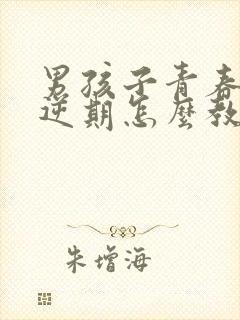 男孩子青春
逆期怎麼教
朱增海